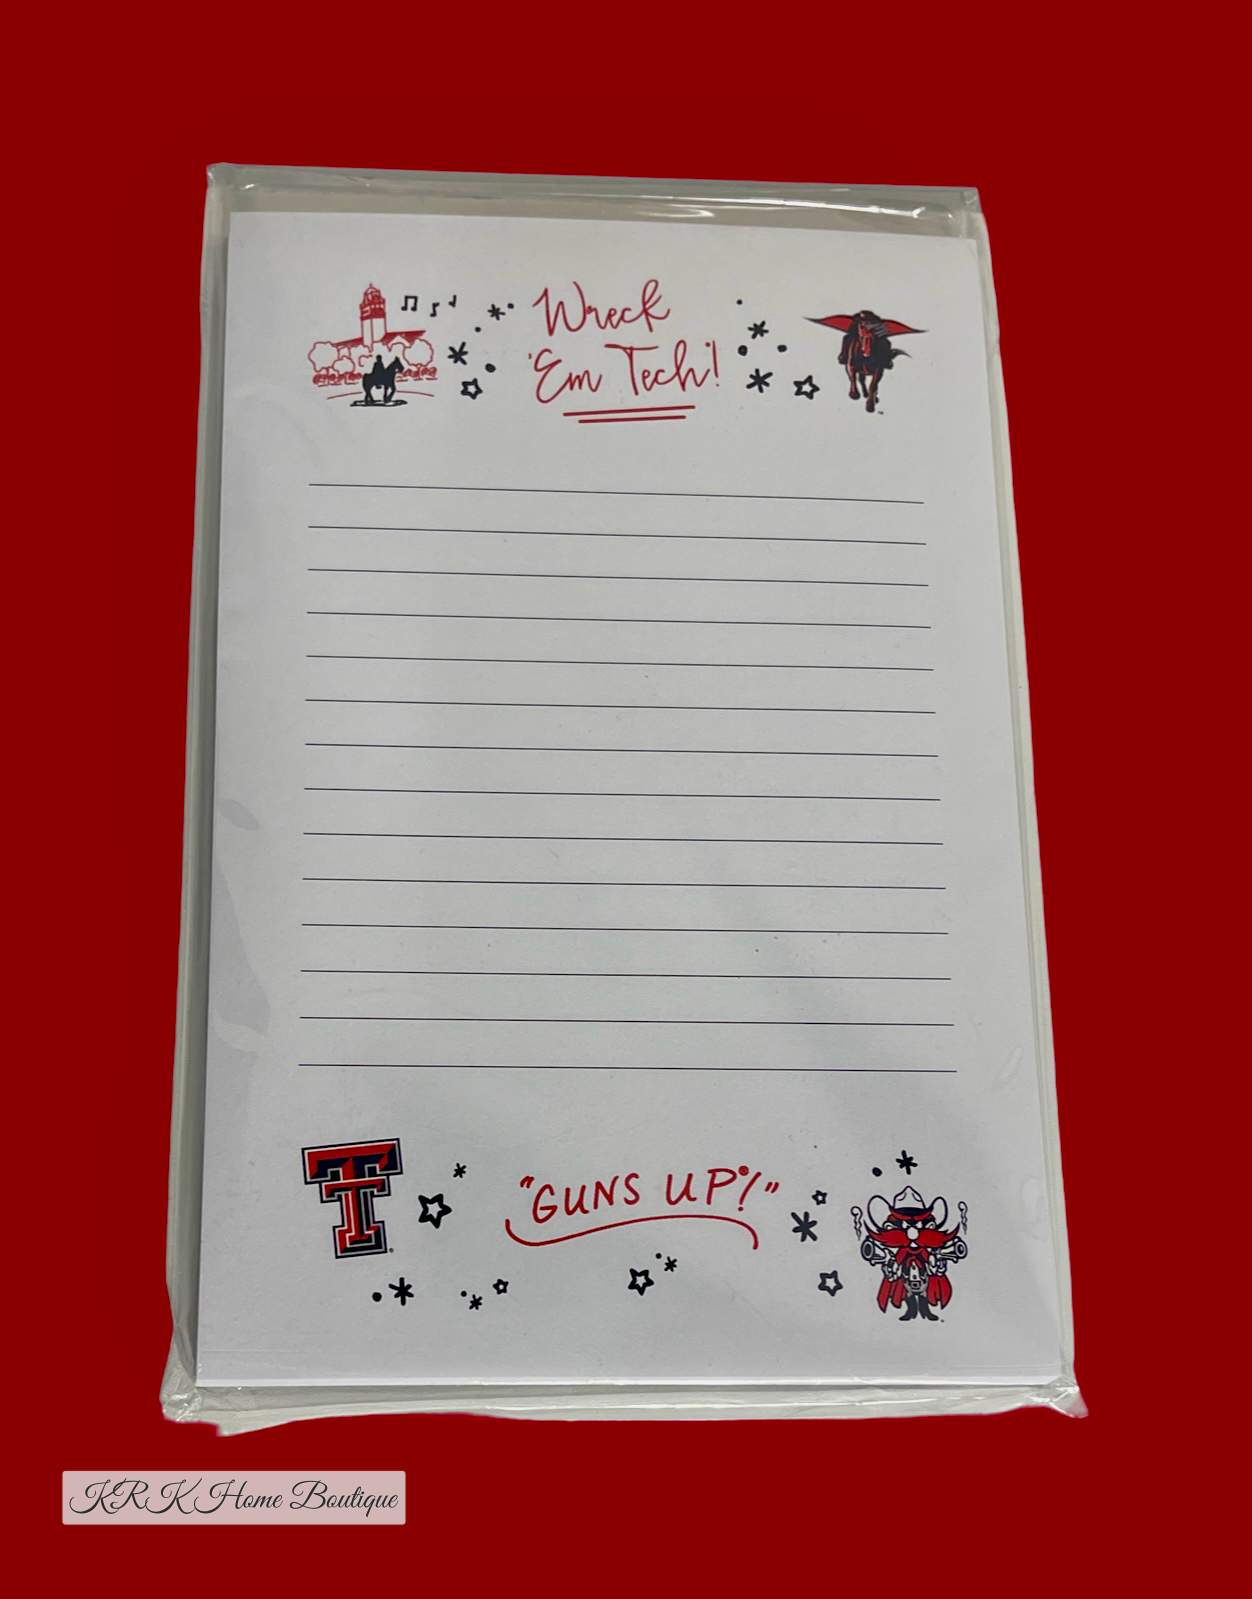 Wreck
'Em Tech!
"GUNS UP®!"
TT
KRK Home Boutique